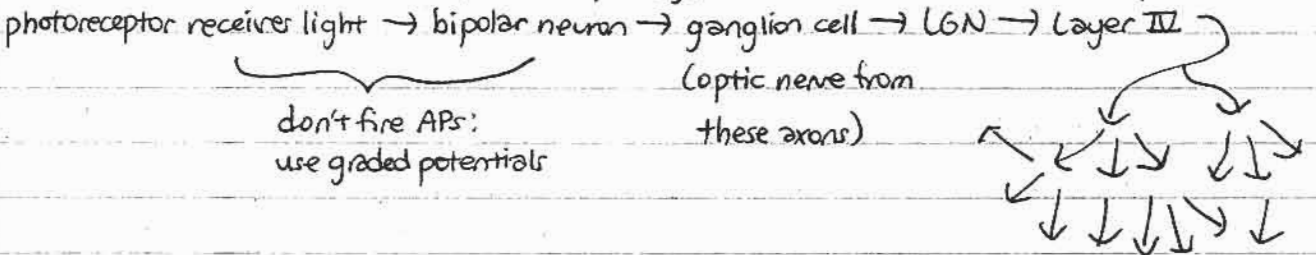 photoreceptor receives light → bipolar neuron → ganglion cell → LGN → Layer IV
don't fire APs:
use graded potentials
(optic nerve from
these axons)